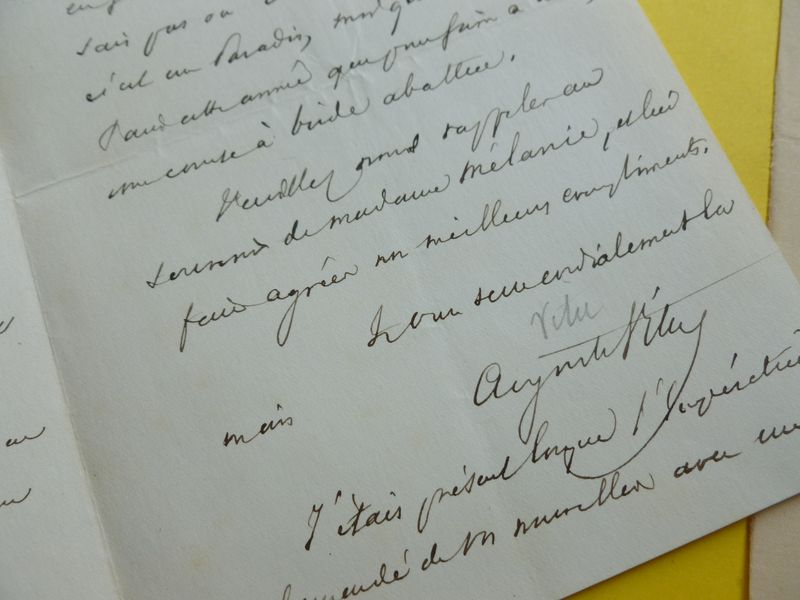 sais pas où
c'est un Paradis,
Pau cette année que pour faire à
une course à bride abattue.
Veuillez nous rappeler au
souvenir de madame Mélanie, et lui
faire agréer nos meilleurs compliments.
Je vous serre cordialement la
Vitu
Auguste Vitu
mais
J'étais présent lorsque l'Impératrice
demandé de vos nouvelles avec une